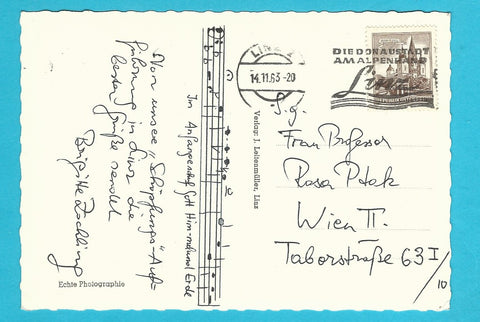 Von unserer „Schöpfungs"-Auf-
führung in Linz die
besten Grüße sendet
Brigitte
Im Anfange schuf Gott Himmel und Erde
Echte Photographie
Verlag: J. Leitenmüller, Linz
LINZ 2
14.11.63-20
DIE DONAUSTADT
AM ALPENRAND
Linz
S.g.
Frau Professor
Rosa Ptak
Wien II.
Taborstraße 63 I/10